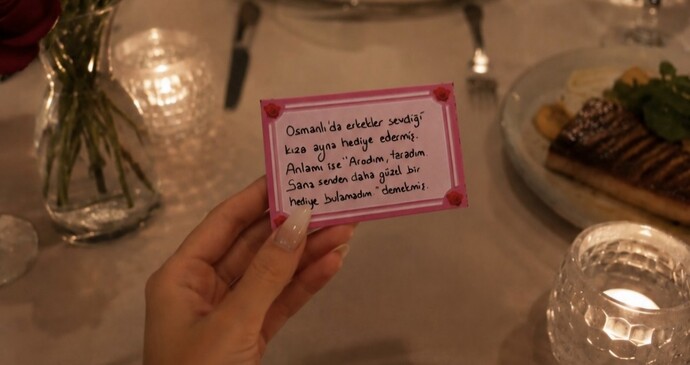 Osmanlı'da erkekler sevdiği
kıza ayna hediye edermiş.
Anlamı ise "Aradım, taradım
Sana senden daha güzel bir
hediye bulamadım" demekmiş.